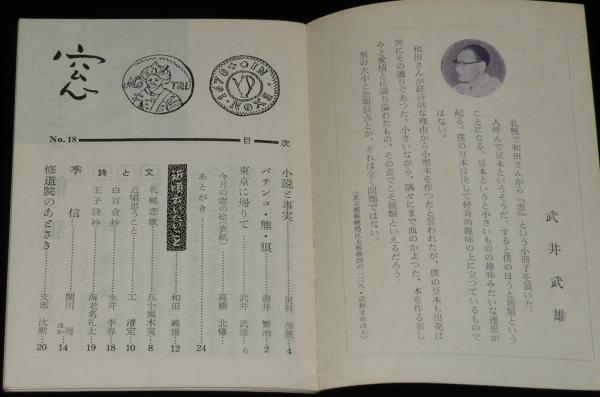 武井武雄
札幌で和田さんから『窓』という小冊子を頂いた。
人呼んで豆本というそうだ。すると僕のほうと親類という
ことになる。豆本というと小さいものの趣味みたいな連想が
起る。僕の豆本は決して好奇的趣味の上に立つているもので
はない。
和田さんが経済的な理由から小型本を作つたと言われたが、僕の豆本も出発は
実にその通りであつた。小さいながら、隅々にまで血のかよつた、本を作る楽し
みと愛情とに満ち溢れたもの、その点でこそ親類といえるだろう。
型の大小とか類似点とか、それは全く問題ではない。
窓
No.18
目次
小説と事実 更科 源蔵 4
パチンコ・熊・狼 壺井 繁治 2
東京に帰りて 武井 武雄 右
今月の窓の絵(表紙) 高橋 北修
あとがき 24
近頃すいないこと 和田 義雄 12
文 札幌恋歌 五十嵐木実 8
と 近頃思うこと 工 清定 10
詩 白百合抄 永井 李春 18
王子詩抄 海老名礼太 19
季信 関川 ほか 14
修道院のあとさき 支部 沈黙 20